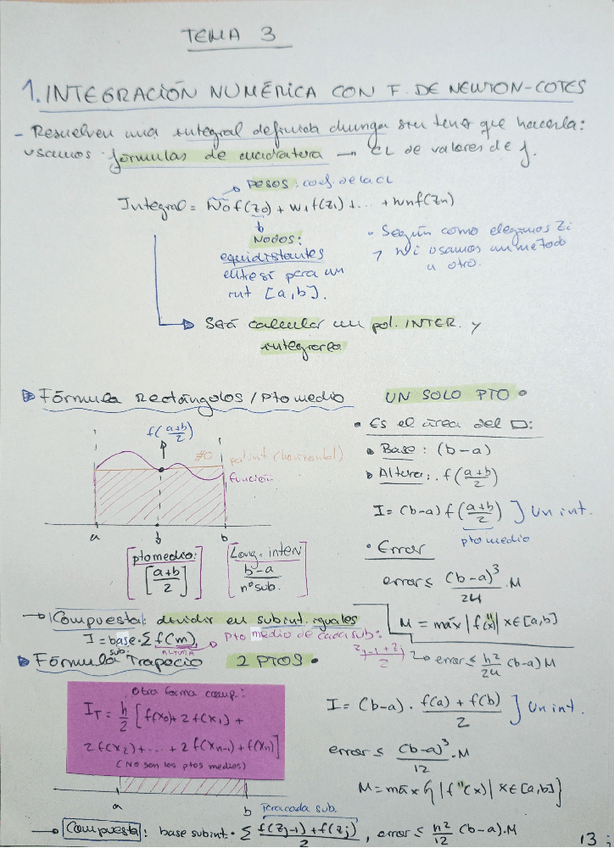 TEMA 3
1. INTEGRACIÓN NUMÉRICA CON F. DE NEWTON-COTES
- Resuelven una integral definida chunga sin tener que hacerla:
usamos fórmulas de cuadratura → CL de valores de f.
Pesos: coef. de la CL
Integral = w0 f(z0) + w1 f(z1) + ... + wn f(zn)
Nodos:
equidistantes
entre sí para un
int [a,b].
• Según como elegimos zi
y wi usamos un método
u otro.
Será calcular un pol. INTER. y
integrarlo
Fórmula Rectángulos / Pto medio
UN SOLO PTO •
f(a+b/2)
pol. int (horizontal)
función
a b b
[pto medio: [a+b/2]]
[Long. interv b-a/nº sub.]
• Es el área del □:
• Base: (b-a)
• Altura: f(a+b/2)
I = (b-a) f(a+b/2) ] Un int.
pto medio
• Error
error ≤ (b-a)³/24 · M
M = máx |f''(x)| x∈[a,b]
→ Compuesta: dividir en subint. iguales
I = base sub. · Σ f(m)
ALTURA
Pto medio de cada sub:
zj-1+zj/2
→ error ≤ h²/24 (b-a) M
Fórmula Trapecio 2 PTOS •
Otra forma comp.:
I_T = h/2 [f(x0) + 2 f(x1) +
2 f(x2) + ... + 2 f(xn-1) + f(xn)]
(No son los ptos medios)
a b
I = (b-a) · f(a) + f(b)/2 ] Un int.
error ≤ (b-a)³/12 · M
M = máx {|f''(x)| x∈[a,b]}
Para cada sub.
→ Compuesta: base subint · Σ f(zj-1) + f(zj)/2, error ≤ h²/12 (b-a) · M
13